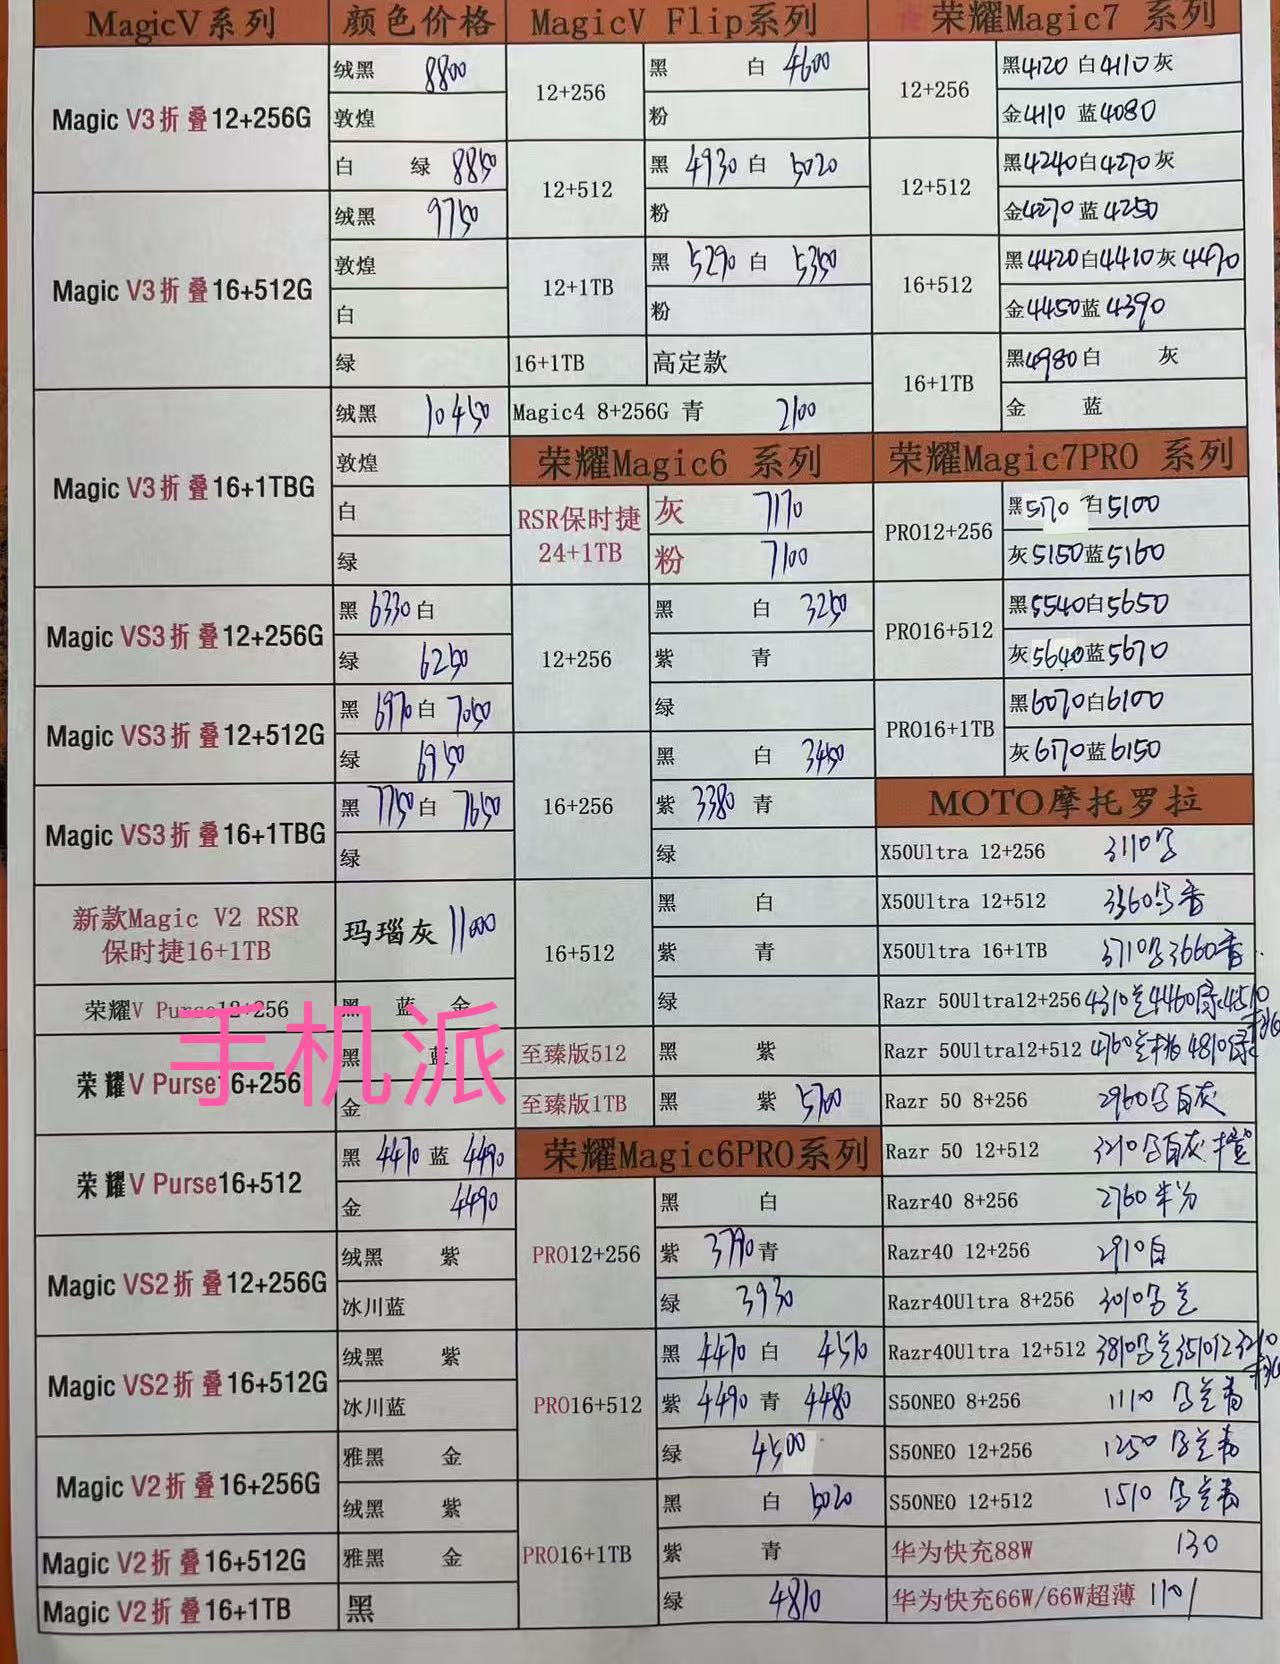 MagicV系列 颜色价格
Magic V3折叠12+256G 绒黑 8800
敦煌
白 绿 8850
Magic V3折叠16+512G 绒黑 9750
敦煌
白
绿
Magic V3折叠16+1TBG 绒黑 10450
敦煌
白
绿
Magic VS3折叠12+256G 黑 6330 白
绿 6250
Magic VS3折叠12+512G 黑 6970 白 7050
绿 6950
Magic VS3折叠16+1TBG 黑 7750 白 7650
绿
新款Magic V2 RSR
保时捷16+1TB 玛瑙灰 11000
荣耀V Purse12+256 黑 蓝 金
荣耀V Purse16+256 黑 蓝
金
荣耀V Purse16+512 黑 4470 蓝 4490
金 4490
Magic VS2折叠12+256G 绒黑 紫
冰川蓝
Magic VS2折叠16+512G 绒黑 紫
冰川蓝
Magic V2折叠16+256G 雅黑 金
绒黑 紫
Magic V2折叠16+512G 雅黑 金
Magic V2折叠16+1TB 黑
MagicV Flip系列
12+256 黑 白 4600
粉
12+512 黑 4930 白 5020
粉
12+1TB 黑 5290 白 5350
粉
16+1TB 高定款
Magic4 8+256G 青 2100
荣耀Magic6 系列
RSR保时捷
24+1TB 灰 7170
粉 7100
12+256 黑 白 3250
紫 青
绿
16+256 黑 白 3450
紫 3380 青
绿
16+512 黑 白
紫 青
绿
至臻版512 黑 紫
至臻版1TB 黑 紫 5700
荣耀Magic6PRO系列
PRO12+256 黑 白
紫 3790 青
绿 3930
PRO16+512 黑 4470 白 4510
紫 4490 青 4480
绿 4500
PRO16+1TB 黑 白 5020
紫 青
绿 4810
荣耀Magic7 系列
12+256 黑4120 白4110 灰
金4110 蓝4080
12+512 黑4240 白4270 灰
金4270 蓝4250
16+512 黑4420 白4410 灰4470
金4450 蓝4390
16+1TB 黑4980 白 灰
金 蓝
荣耀Magic7PRO 系列
PRO12+256 黑5170 白5100
灰5150 蓝5160
PRO16+512 黑5540 白5650
灰5640 蓝5670
PRO16+1TB 黑6070 白6100
灰6170 蓝6150
MOTO摩托罗拉
X50Ultra 12+256 3110
X50Ultra 12+512 3360
X50Ultra 16+1TB 3710 3660
Razr 50Ultra12+256 4310兰4460绿4510
Razr 50Ultra12+512 4760兰桃4810绿
Razr 50 8+256 2960 白灰
Razr 50 12+512 3210 白灰橙
Razr40 8+256 2760
Razr40 12+256 2910白
Razr40Ultra 8+256 3010 兰
Razr40Ultra 12+512 3810 兰3510
S50NEO 8+256 1110
S50NEO 12+256 1250
S50NEO 12+512 1510
华为快充88W 130
华为快充66W/66W超薄 110
手机派